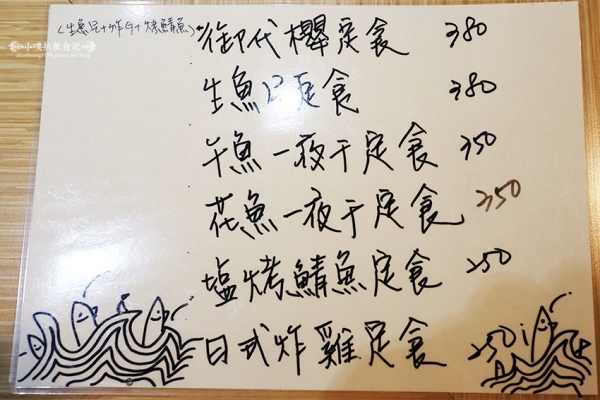 (生魚尺+炸牛+烤鯖魚) 御代櫻定食 380
生魚尺定食 380
午魚一夜干定食 350
花魚一夜干定食 350
塩烤鯖魚定食 250
日式炸雞定食 250
小噗趴飯食記